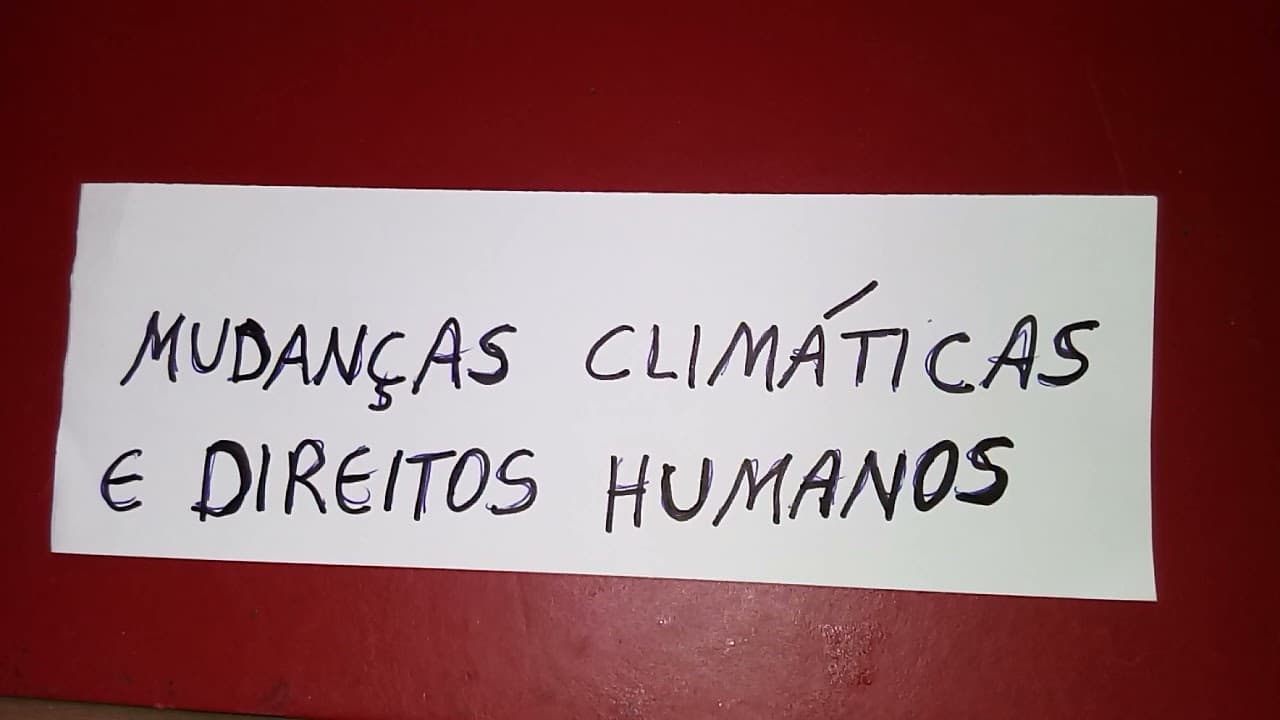 MUDANÇAS CLIMÁTICAS
E DIREITOS HUMANOS